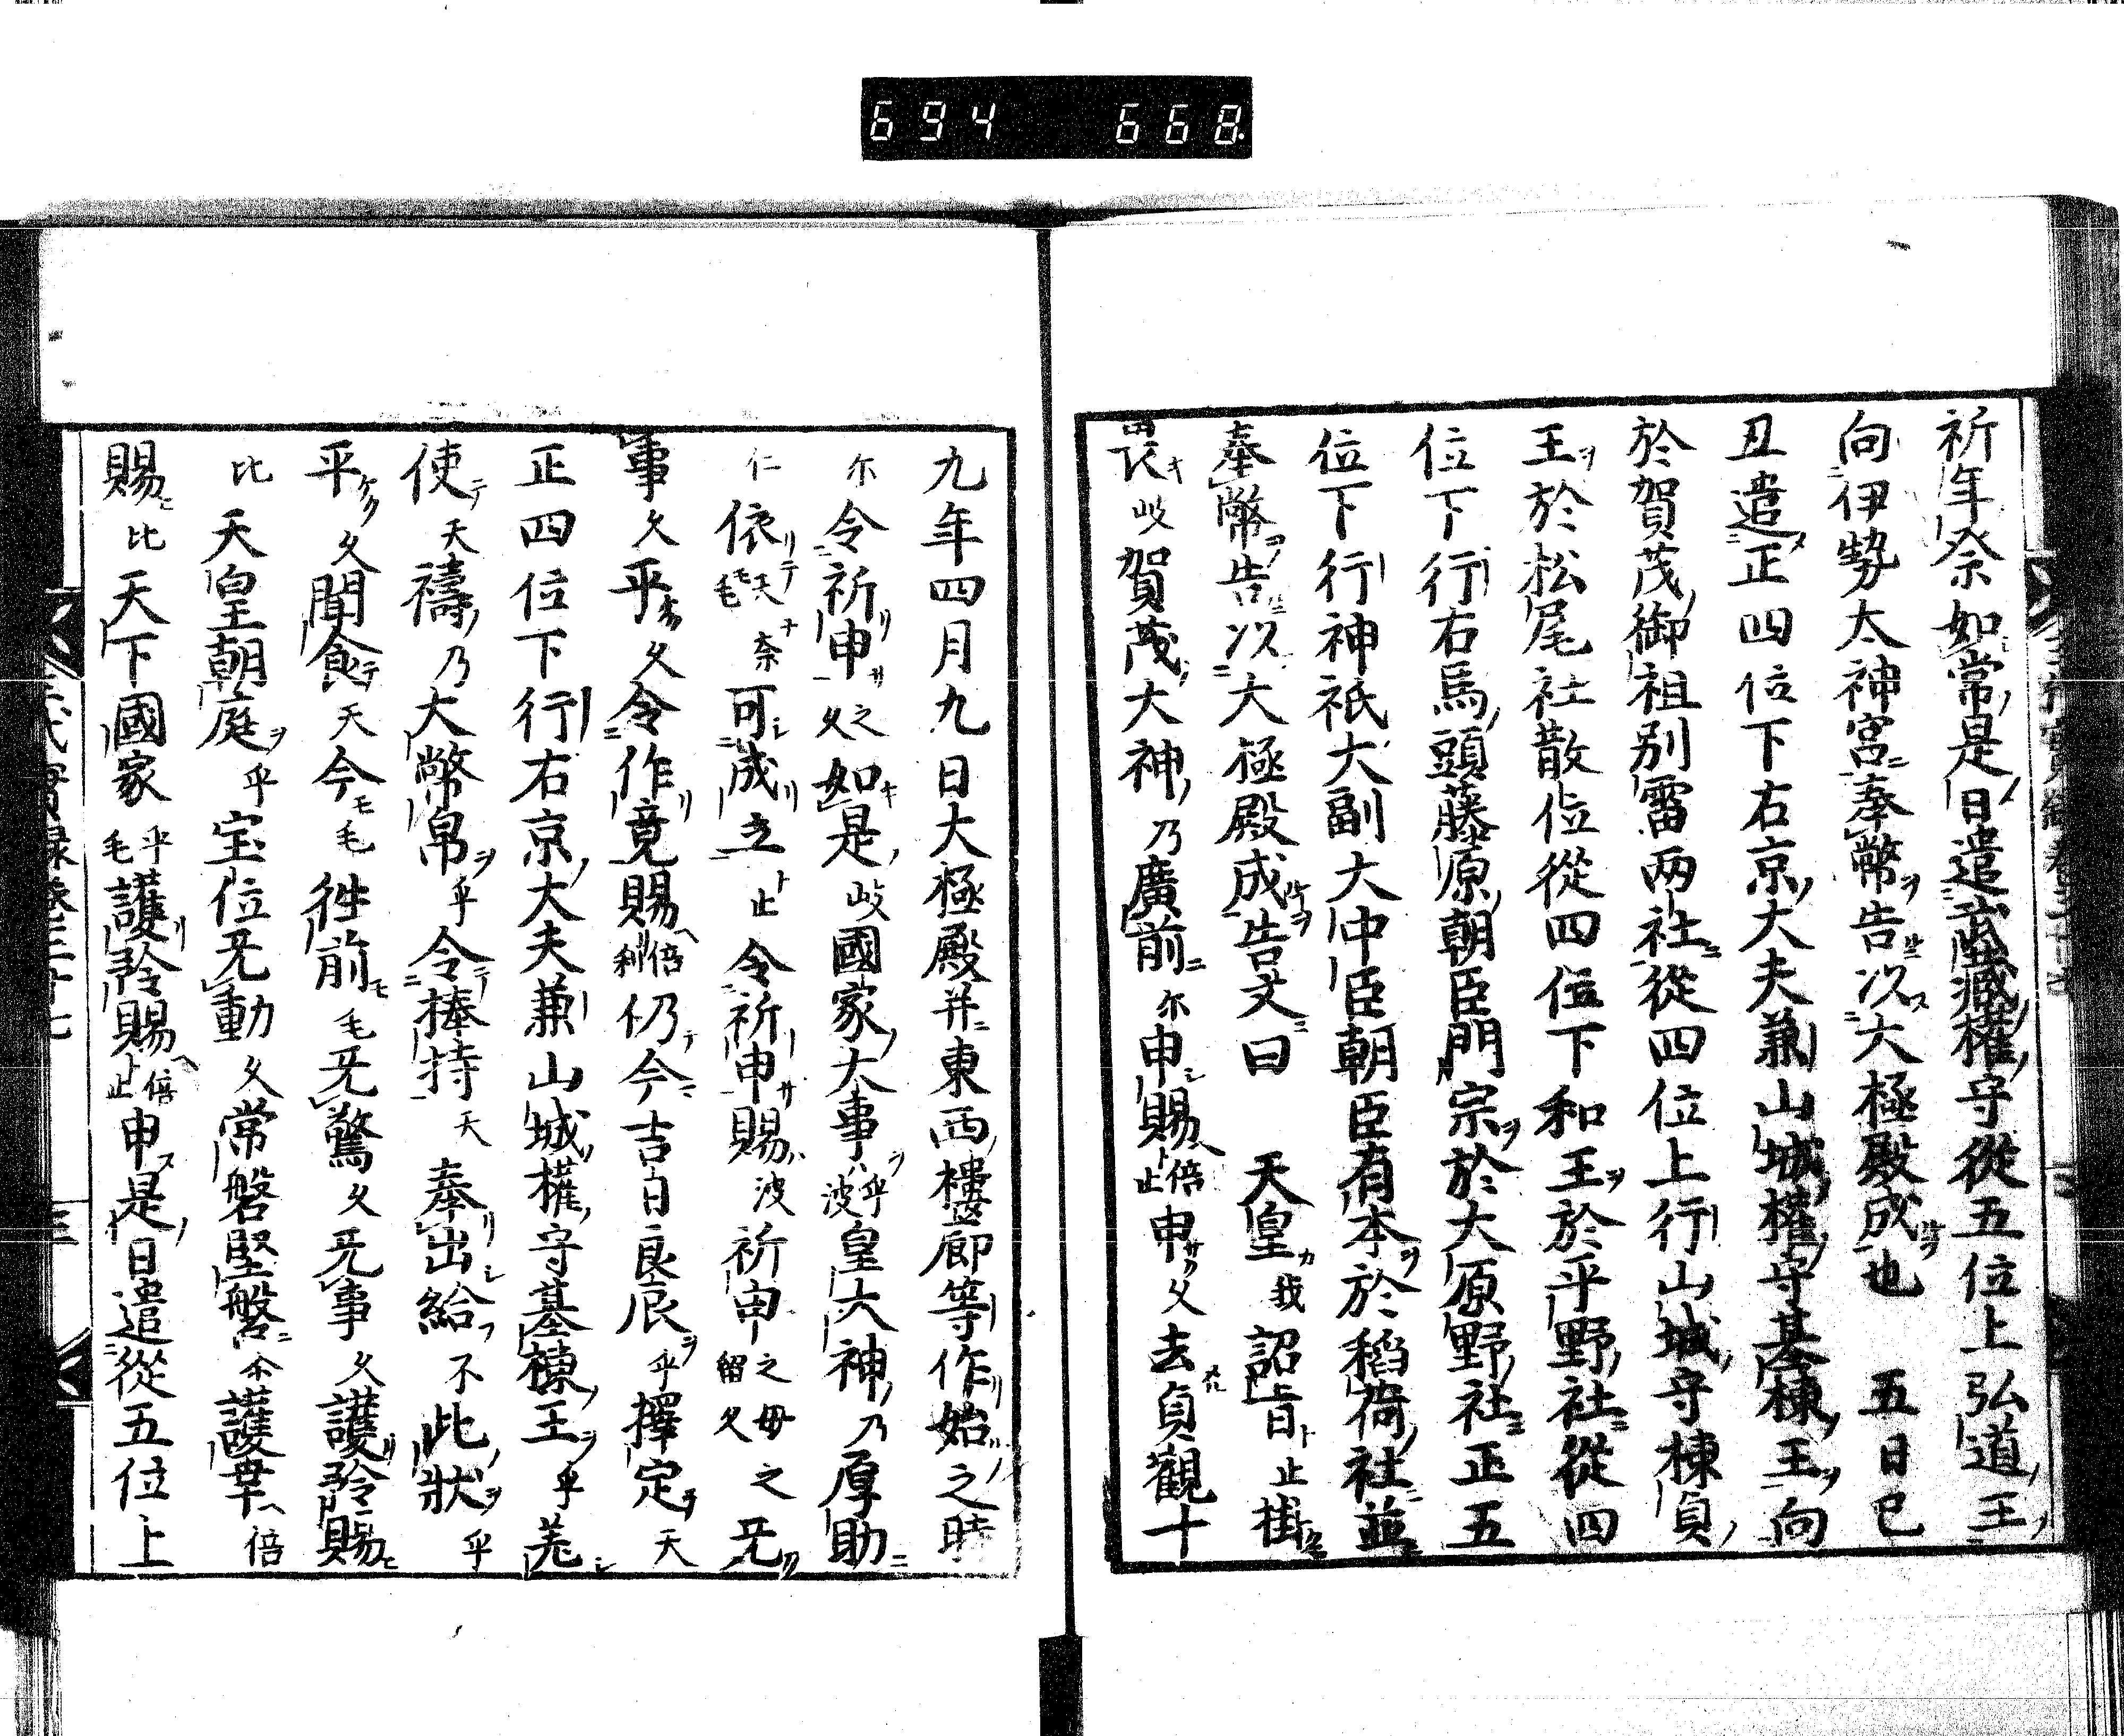 694 668
祈年祭如常是日遣武藏權守從五位上弘道王
向伊勢太神宮奉幣告以大極殿成也 五日己
丑遣正四位下右京大夫兼山城權守基棟王向
於賀茂御祖別雷兩社從四位上行山城守棟貞
王於松尾社散位從四位下和王於平野社從四
位下行右馬頭藤原朝臣門宗於大原野社正五
位下行神祇大副大中臣朝臣有本於稻荷社並
奉幣告以大極殿成告文曰 天皇我詔旨止掛
畏岐賀茂大神乃廣前尓申賜倍止申久去貞觀十
九年四月九日大極殿并東西樓廊等作始之時
尓令祈申之久如是岐國家大事乎波皇大神乃厚助
仁依天毛奈可成立止令祈申賜波祈申之留毋久之无
事久平久令作竟賜倍利仍今吉日良辰乎擇定天
正四位下行右京大夫兼山城權守基棟王乎差
使天禱乃大幣帛乎令捧持天奉出給不此狀乎
平久聞食天今毛徃前毛无驚久无事久護矜賜
比天皇朝庭乎宝位无動久常磐堅磐尓護幸倍
賜比天下國家乎毛護矜賜倍止申是日遣從五位上